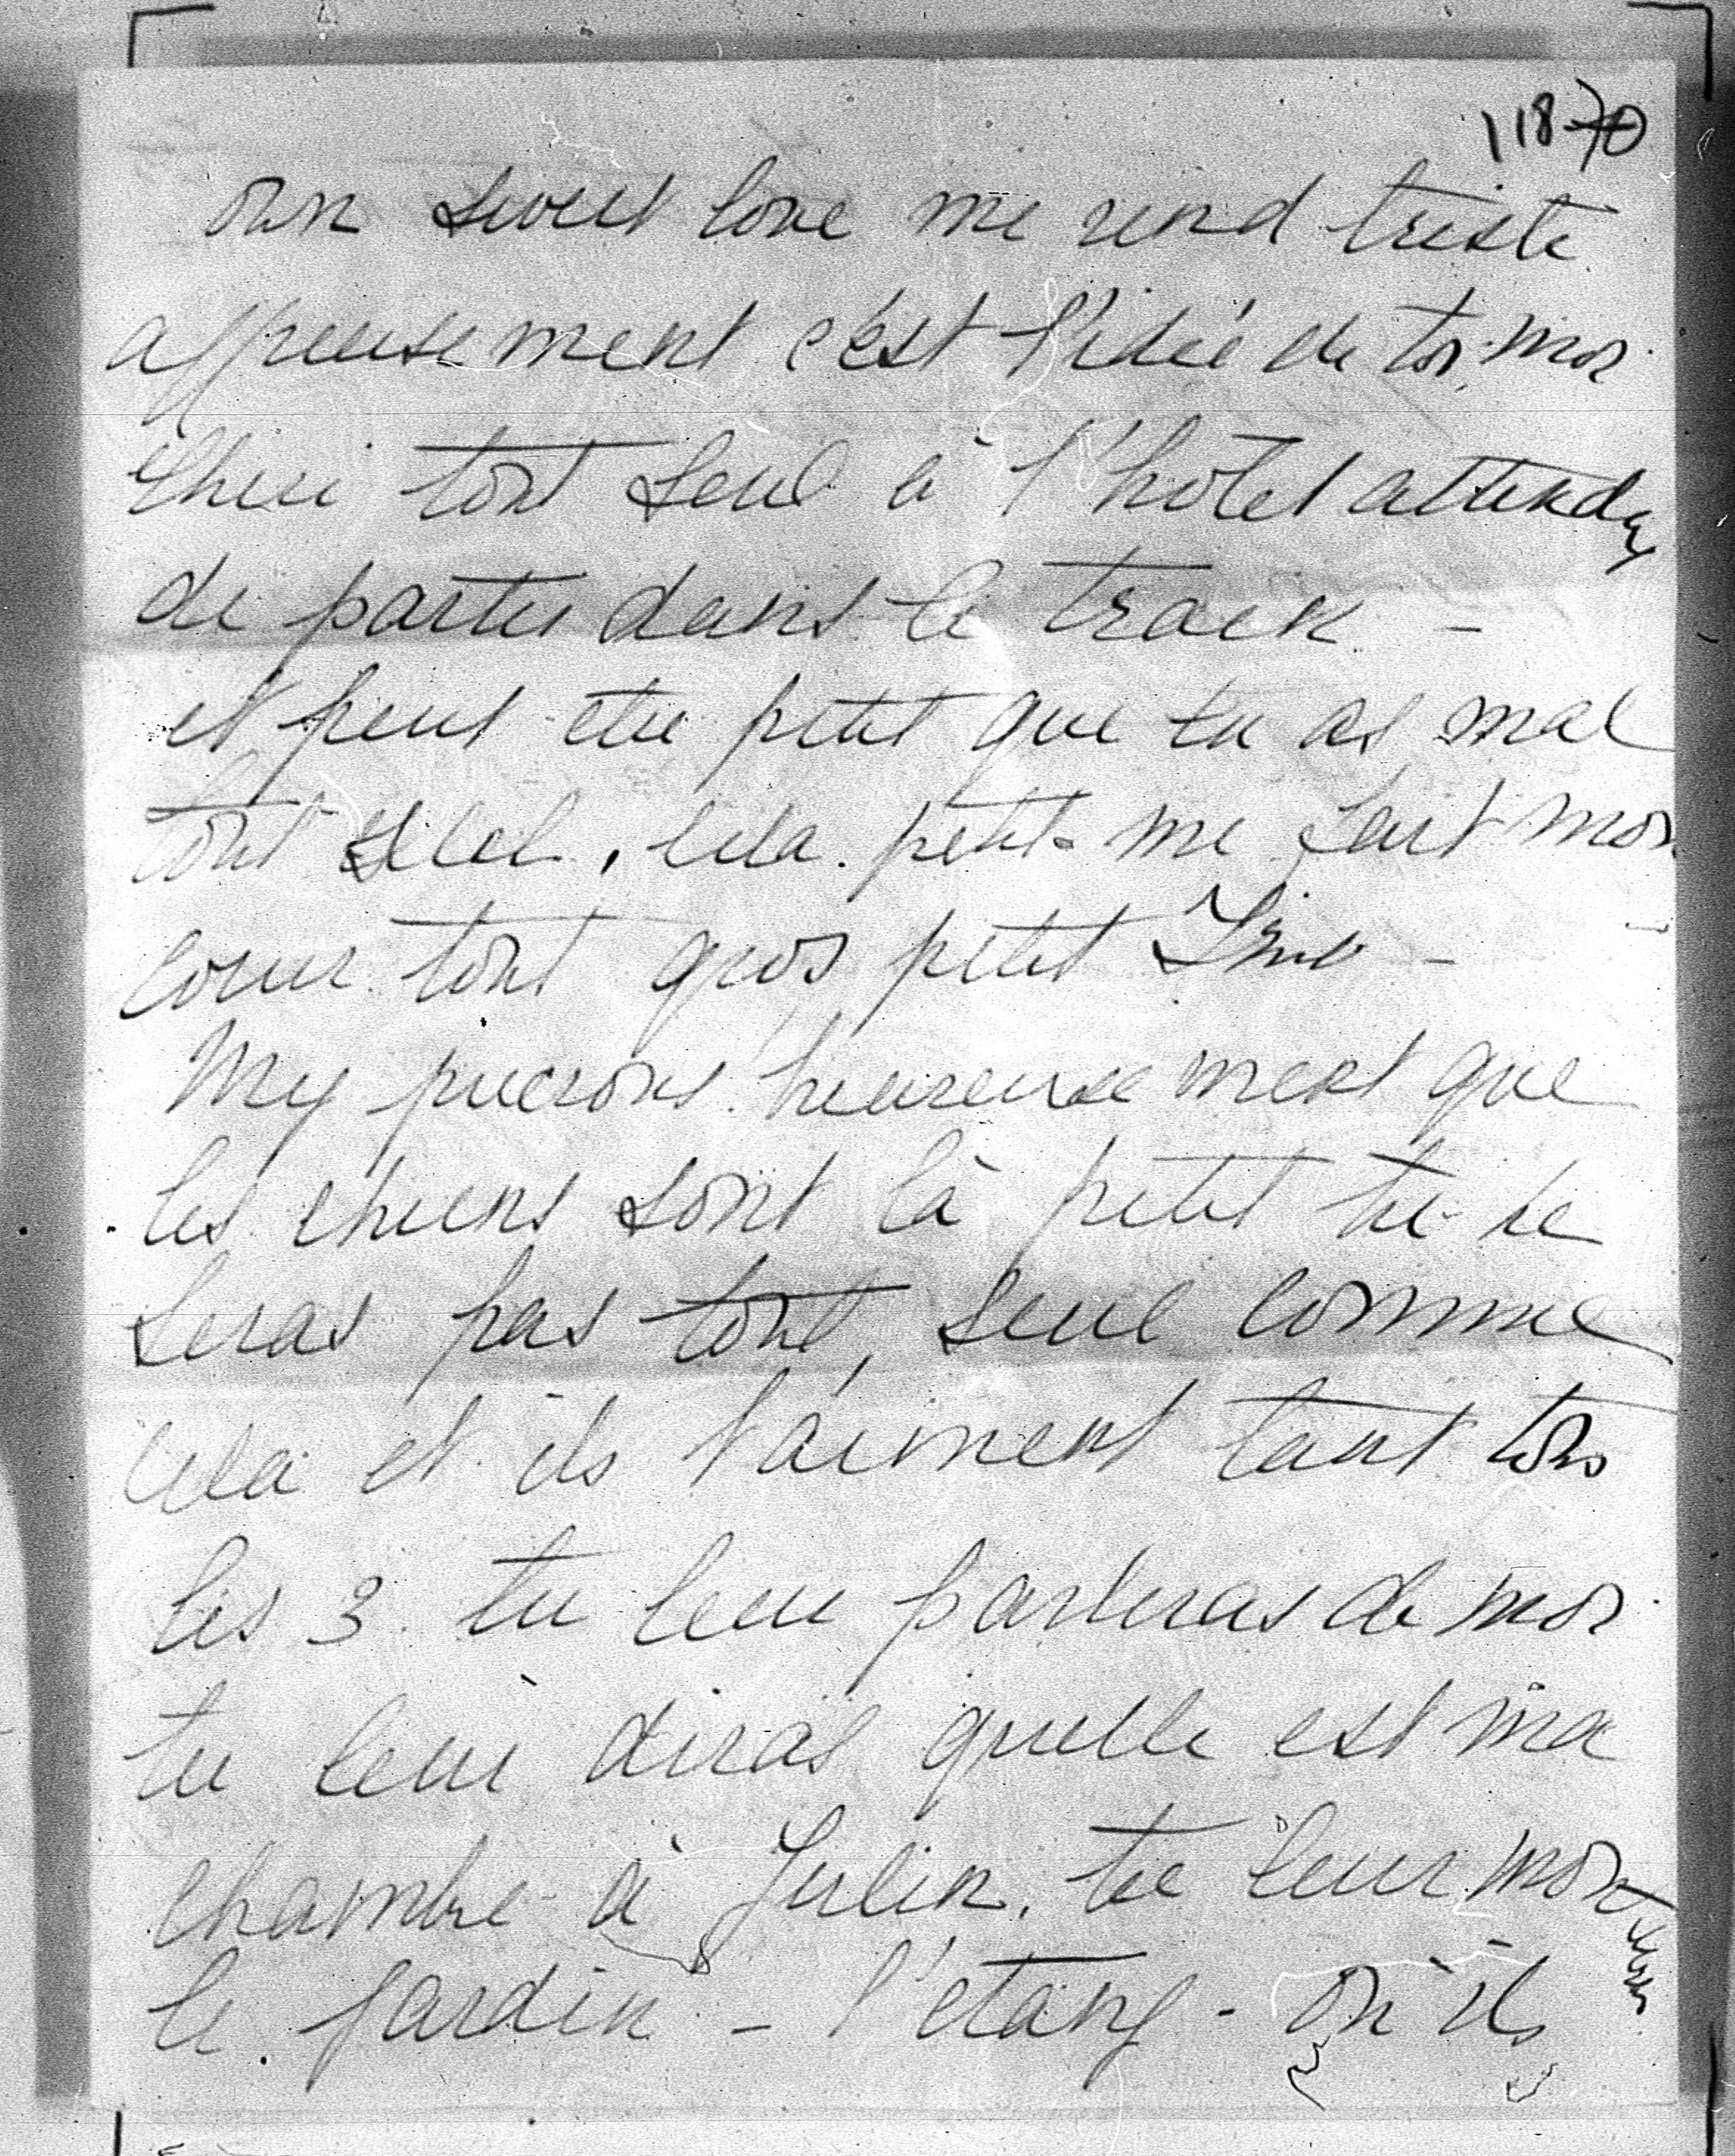 11870
own sweet love me rend triste
affreusement c'est l'idée de toi. mon
cheri tout seul à l'hotel attendant
de partir dans le track -
et peut etre petit que tu as mal
tout seul, cela. petit me fait mon
coeur tout gros petit -
My precious heureusement que
les chiens sont là petit tu ne
seras pas tout seul comme
cela et ils t'aiment tant tous
les 3. tu leur parleras de moi
tu leur diras quelle est ma
chambre à Julin. tu leur montreras
le jardin - l'etang - où ils